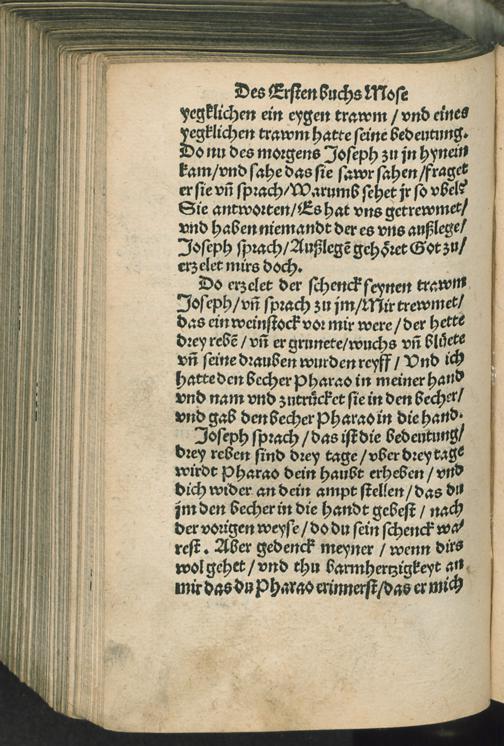 Des Ersten buchs Mose
yegklichen ein eygen trawm / vnd eines
yegklichen trawm hatte seine bedeutung.
Do nu des morgens Joseph zu jn hynein
kam/vnd sahe das sie sawr sahen /fraget
er sie vñ sprach/Warumb sehet jr so vbels
Sie antworten/Es hat vns getrewmet/
vnd haben niemandt der es vns außlege/
Joseph sprach/Außlegẽ gehöret Got zu/
erzelet mirs doch.
Do erzelet der schenck seynen trawm
Joseph/vñ sprach zu jm/Mir trewmet/
das ein weinstock vor mir were/der hette
drey rebẽ/vñ er grunete/wuchs vñ blüete
vñ seine drauben wurden reyff / Vnd ich
hatte den becher Pharao in meiner hand
vnd nam vnd zutrücket sie in den becher/
vnd gab den becher Pharao in die hand.
Joseph sprach / das ist die bedeutung/
drey reben sind drey tage / vber drey tage
wirdt Pharao dein haubt erheben / vnd
dich wider an dein ampt stellen / das du
jm den becher in die handt gebest / nach
der vorigen weyse / do du sein schenck wa
rest. Aber gedenck meyner / wenn dirs
wol gehet / vnd thu barmhertzigkeyt an
mir das du Pharao erinnerst/das er mich